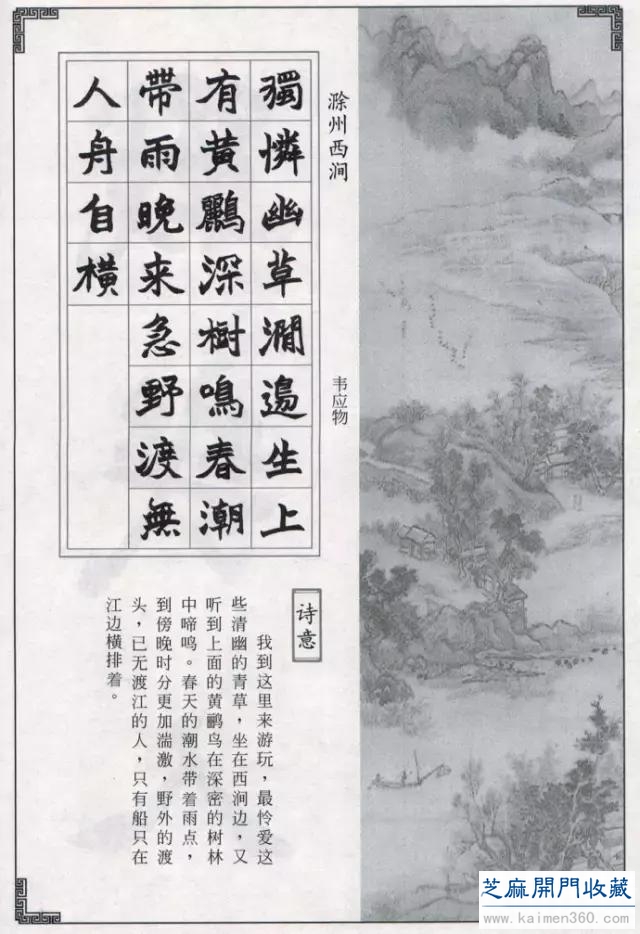 滁州西涧
韦应物
獨憐幽草澗邊生上
有黃鸝深樹鳴春潮
帶雨晚来急野渡無
人舟自橫
诗意
我到这里来游玩，最怜爱这
些清幽的青草，坐在西涧边，又
听到上面的黄鹂鸟在深密的树林
中啼鸣。春天的潮水带着雨点，
到傍晚时分更加湍激，野外的渡
头，已无渡江的人，只有船只在
江边横排着。
芝麻開門收藏
www.kaimen360.com